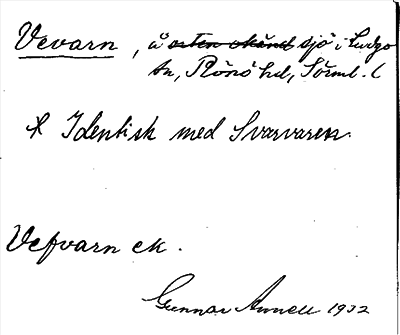 Vevarn, å orten okänd sjö i Ludgo
sn, Rönö hd, Sörml. l
* Identisk med Svarvaren.
Vefvarn ek.
Gunnar Annell 1932